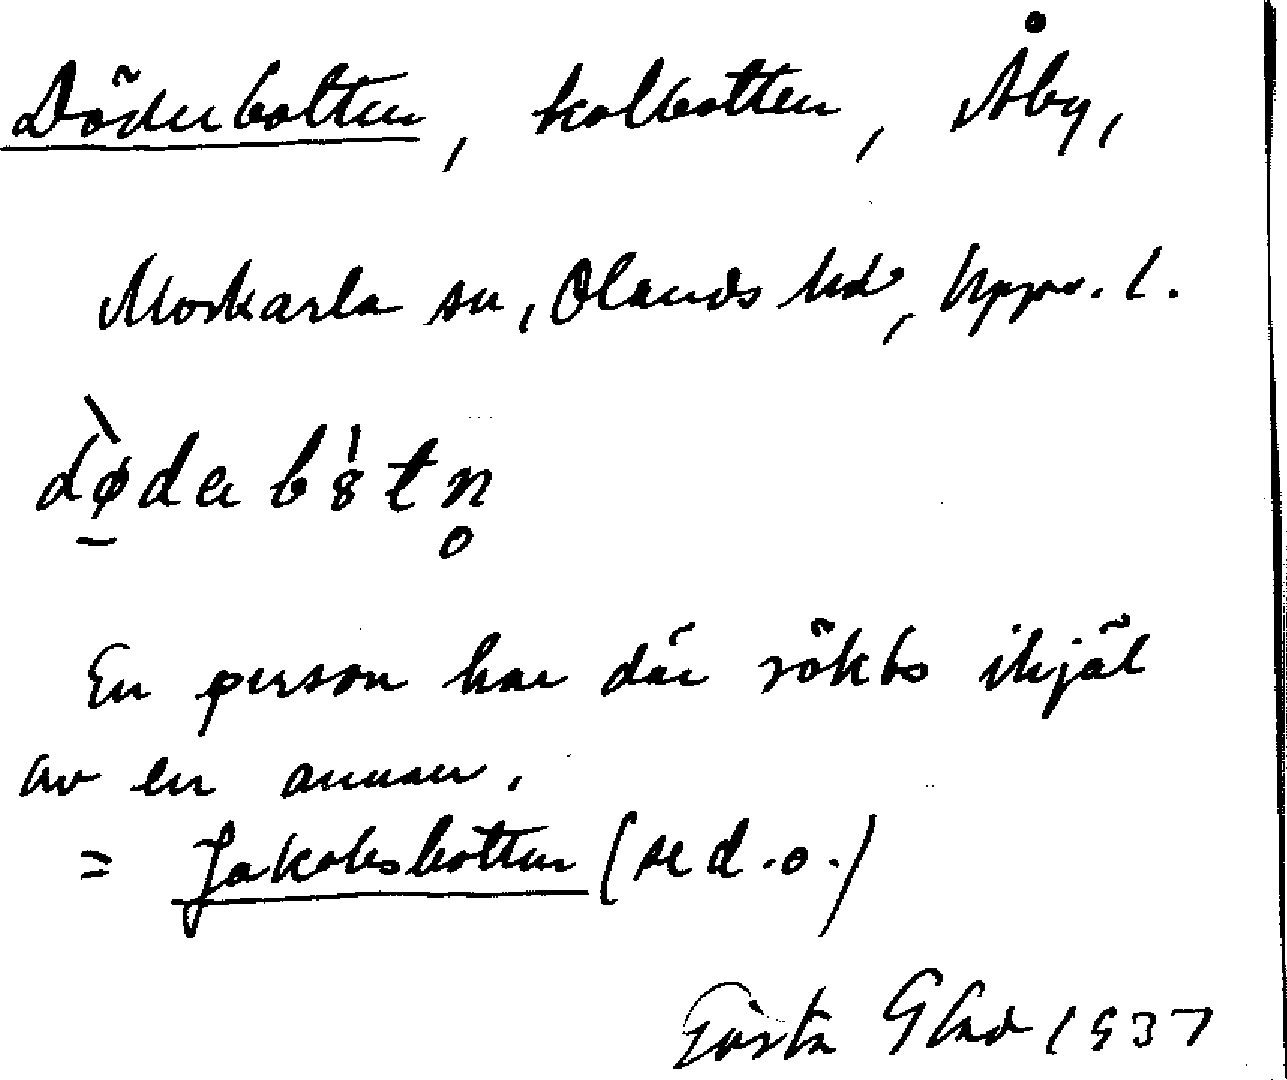 Döderbotten, kolbotten, Åby,
Morkarla sn, Olands hd, Upps. l.
dø̀dabꞌ8tn̥
En person har där rökts ihjäl
av en annan.
= Jakobsbotten (se d.o.)
Gösta Glad 1937